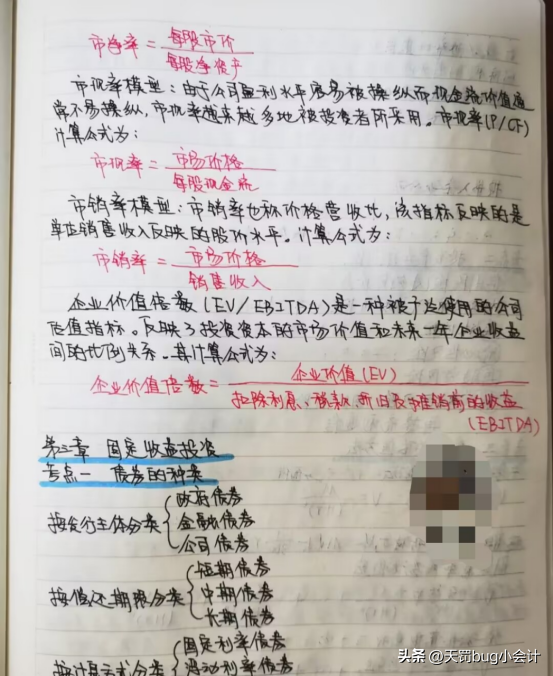 市净率 = 每股市价 / 每股净资产
市现率模型：由于公司盈利水平容易被操纵而现金流价值通
常不易操纵，市现率越来越多地被投资者所采用。市现率(P/CF)
计算公式为：
市现率 = 市场价格 / 每股现金流
市销率模型：市销率也称价格营收比，该指标反映的是
单位销售收入反映的股价水平。计算公式为：
市销率 = 市场价格 / 销售收入
企业价值倍数(EV/EBITDA)是一种被广泛使用的公司
估值指标。反映了投资资本的市场价值和未来一年企业收益
间的比例关系。其计算公式为：
企业价值倍数 = 企业价值(EV) / 扣除利息、税款、折旧及摊销前的收益
(EBITDA)
第三章 固定收益投资
考点一 债券的种类
按发行主体分类 { 政府债券
金融债券
公司债券
按偿还期限分类 { 短期债券
中期债券
长期债券
按计息方式分类 { 固定利率债券
浮动利率债券
头条 @天罚bug小会计